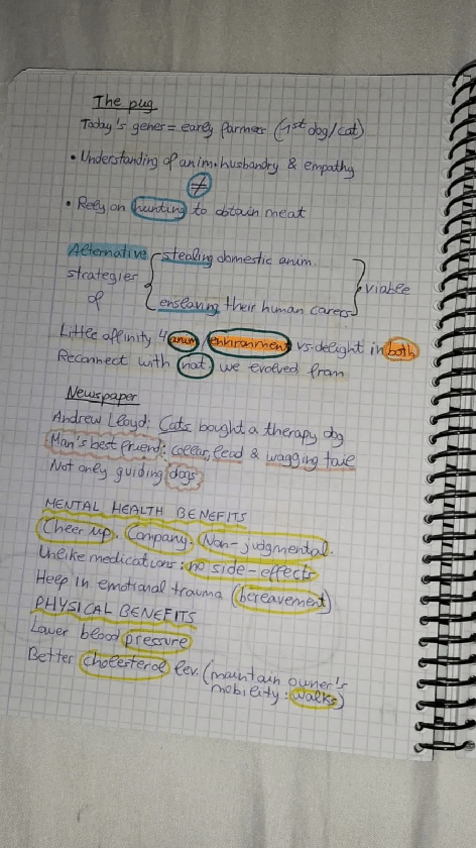 The pug
Today's genes = early farmers (1st dog/cat)
• Understanding of anim. husbandry & empathy
≠
• Rely on hunting to obtain meat
Alternative stealing domestic anim.
strategies } viable
of enslaving their human carers
Little affinity 4 anim/environment vs. delight in both
Reconnect with nat. we evolved from
Newspaper
Andrew Lloyd: Cats bought a therapy dog
Man's best friend: collar, lead & wagging tail
Not only guiding dogs
MENTAL HEALTH BENEFITS
Cheer up. Company. Non-judgmental.
Unlike medications: no side-effects
Help in emotional trauma (bereavement)
PHYSICAL BENEFITS
Lower blood pressure
Better cholesterol lev. (maintain owner's
mobility: walks)